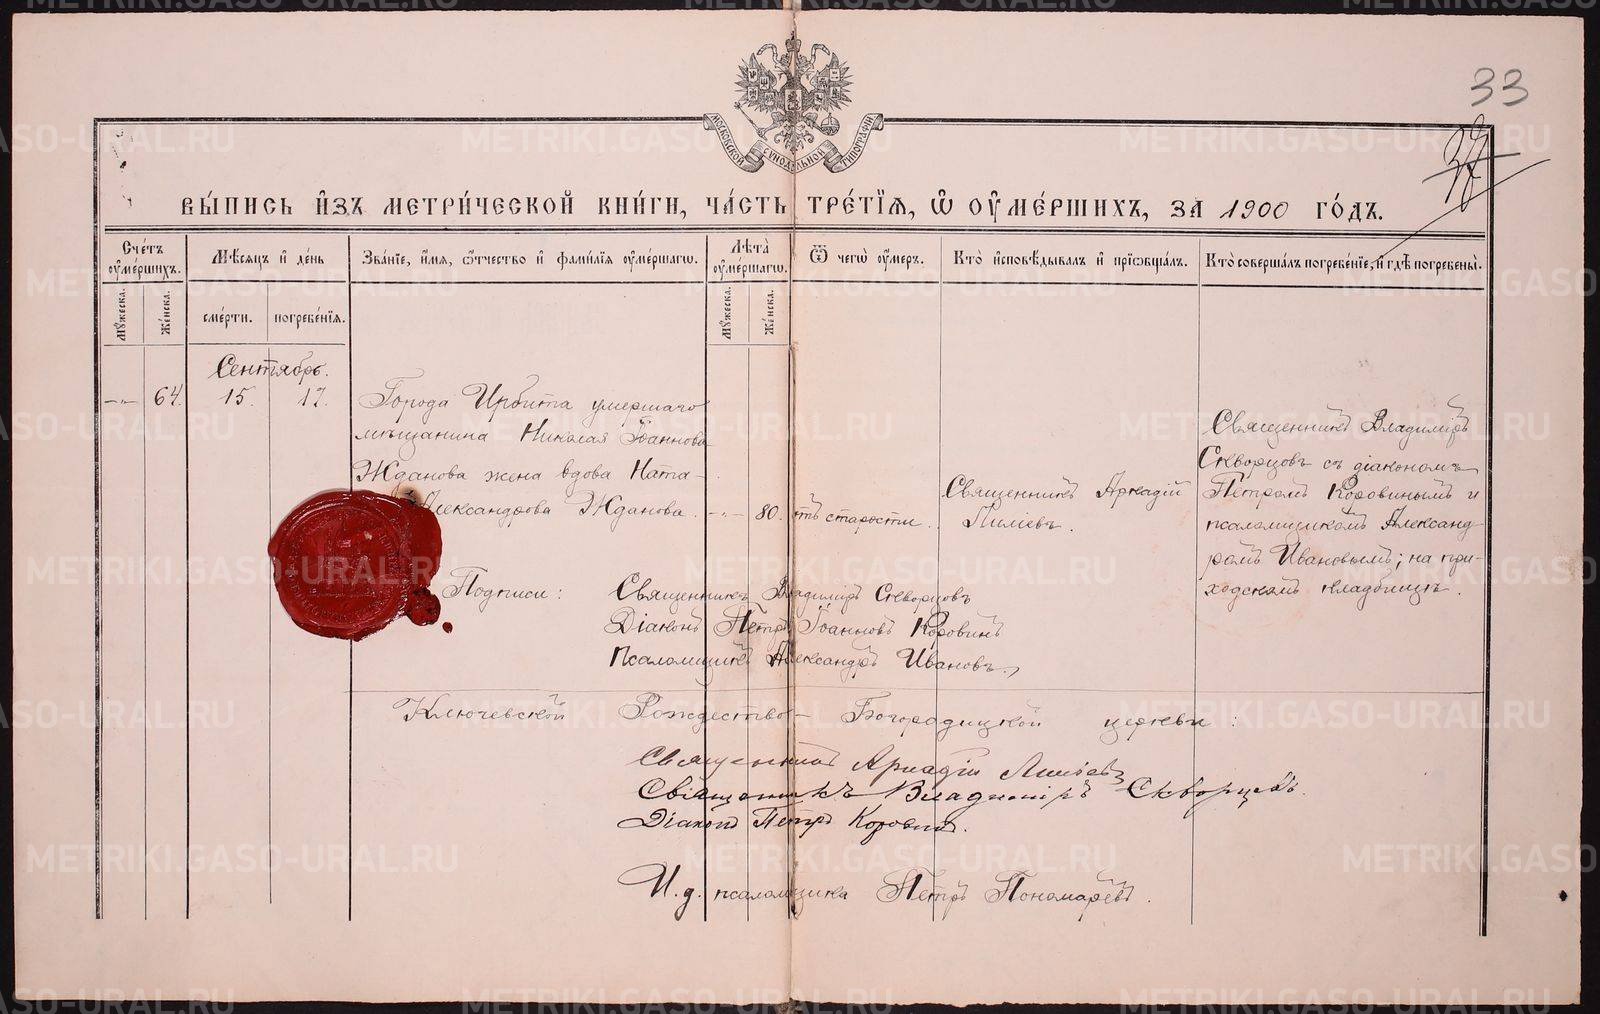 33
МОСКОВСКОЙ СѴНОДАЛЬНОЙ ТИПОГРАФІИ
ВЫ́ПИСЬ И҆ЗЪ МЕТРИ́ЧЕСКОЙ КНИ́ГИ, ЧА́СТЬ ТРЕ́ТІЯ, Ѡ҆ ОУ҆МЕ́РШИХЪ, ЗА 1900 ГО́ДЪ.
Сче́тъ оу҆ме́ршихъ.
Мѣ́сяцъ и҆ де́нь
Зва́ніе, и҆́мя, ѻ҆́тчество и҆ фами́лія оу҆ме́ршагѡ.
Лѣ́та оу҆ме́ршагѡ.
Ѿ чегѡ̀ оу҆́меръ.
Кто̀ и҆сповѣ́дывалъ и҆ прїѡбща́лъ.
Кто̀ соверша́лъ погребе́ніе, и҆ гдѣ̀ погребены̀.
Му́жеска.
Же́нска.
сме́рти.
погребе́нія.
Му́жеска.
Же́нска.
Сентябрь.
-"- 64. 15. 17.
Города Ирбита умершаго
мѣщанина Николая Іоаннова
Жданова жена вдова Ната-
Александрова Жданова. -"- 80. отъ старости.
Священникъ Аркадій
Лиліевъ.
Священникъ Владиміръ
Скворцовъ съ діакономъ
Петромъ Коровинымъ и
псаломщикомъ Александ
ромъ Ивановымъ; на при-
ходскомъ кладбищѣ.
Подписи: Священникъ Владиміръ Скворцовъ
Діаконъ Петръ Іоанновъ Коровинъ
Псаломщикъ Александръ Ивановъ.
Ключевской Рождество-Богородицкой церкви:
Священникъ Аркадій Лиліевъ
Священникъ Владиміръ Скворцовъ.
Діаконъ Петръ Коровинъ.
И.д. псаломщика Петръ Пономаревъ.
METRIKI.GASO-URAL.RU